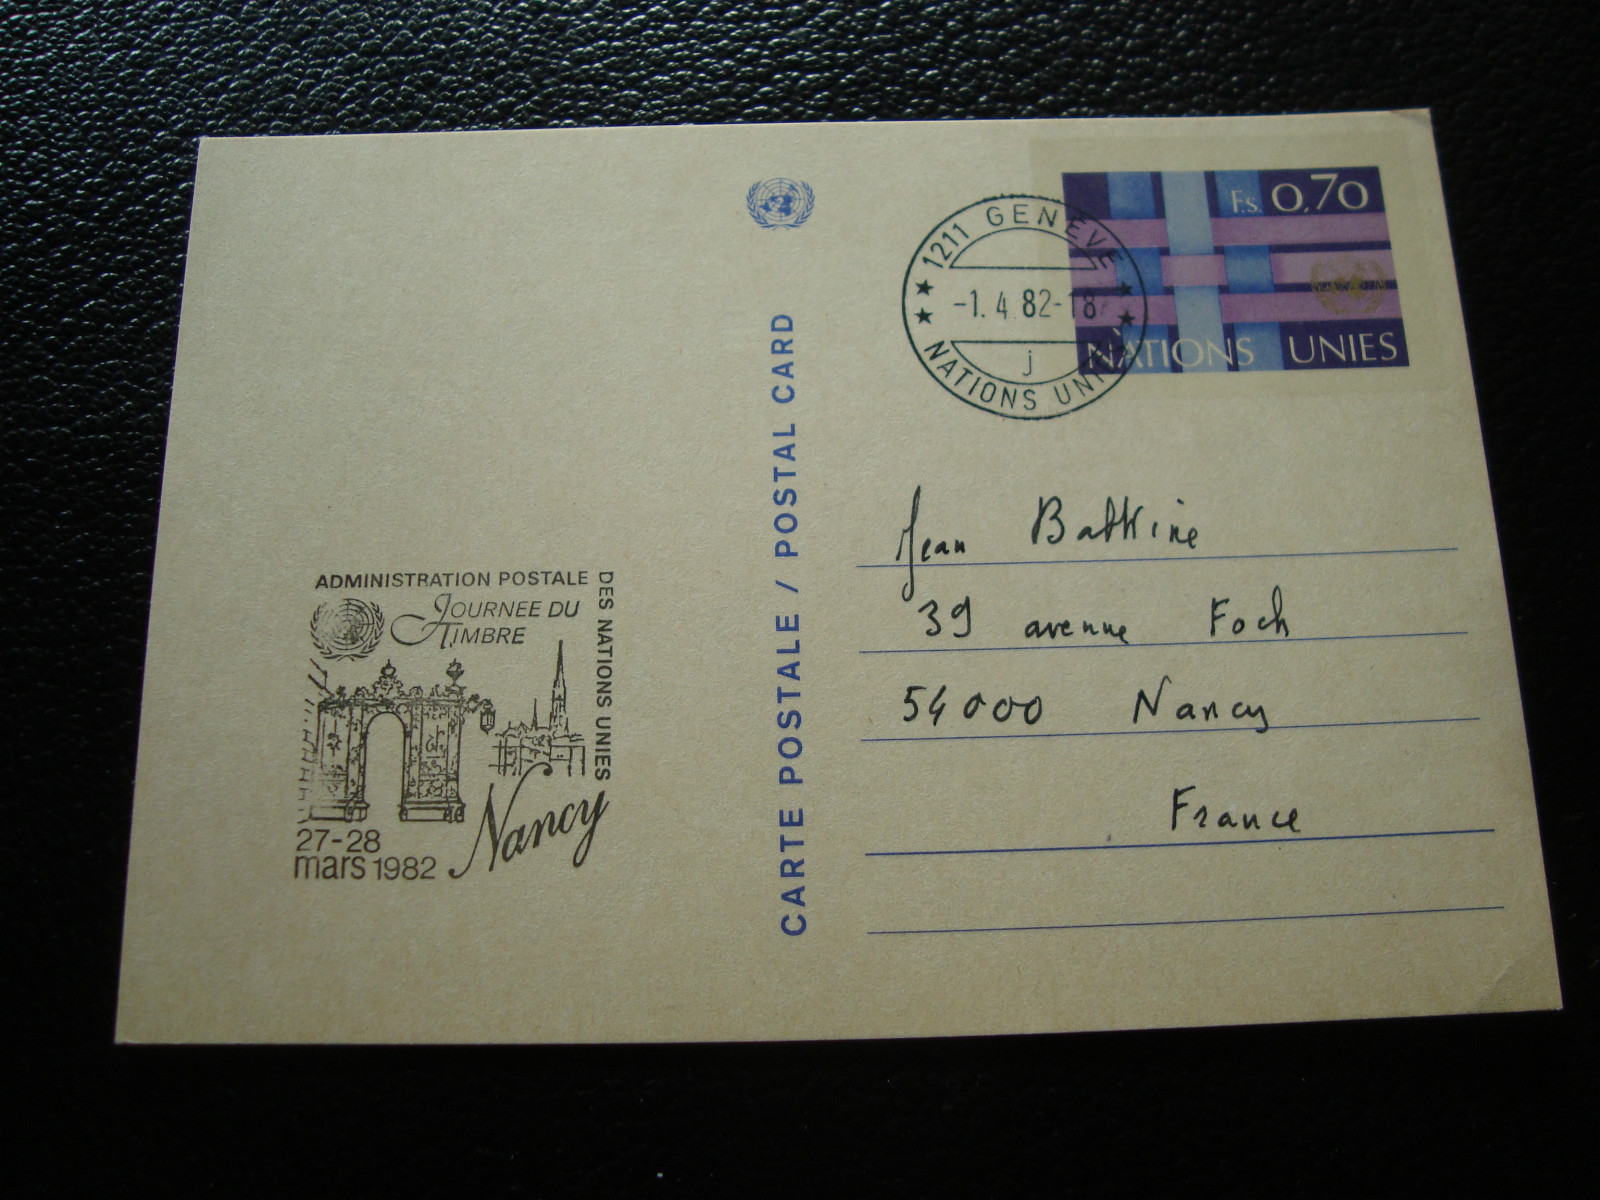 Fs. 0,70
NATIONS UNIES
1211 GENÈVE
-1.4.82-18
j
NATIONS UNIES
CARTE POSTALE / POSTAL CARD
Jean Batkine
39 avenue Foch
54000 Nancy
France
ADMINISTRATION POSTALE
DES NATIONS UNIES
JOURNEE DU
TIMBRE
27-28
mars 1982
Nancy